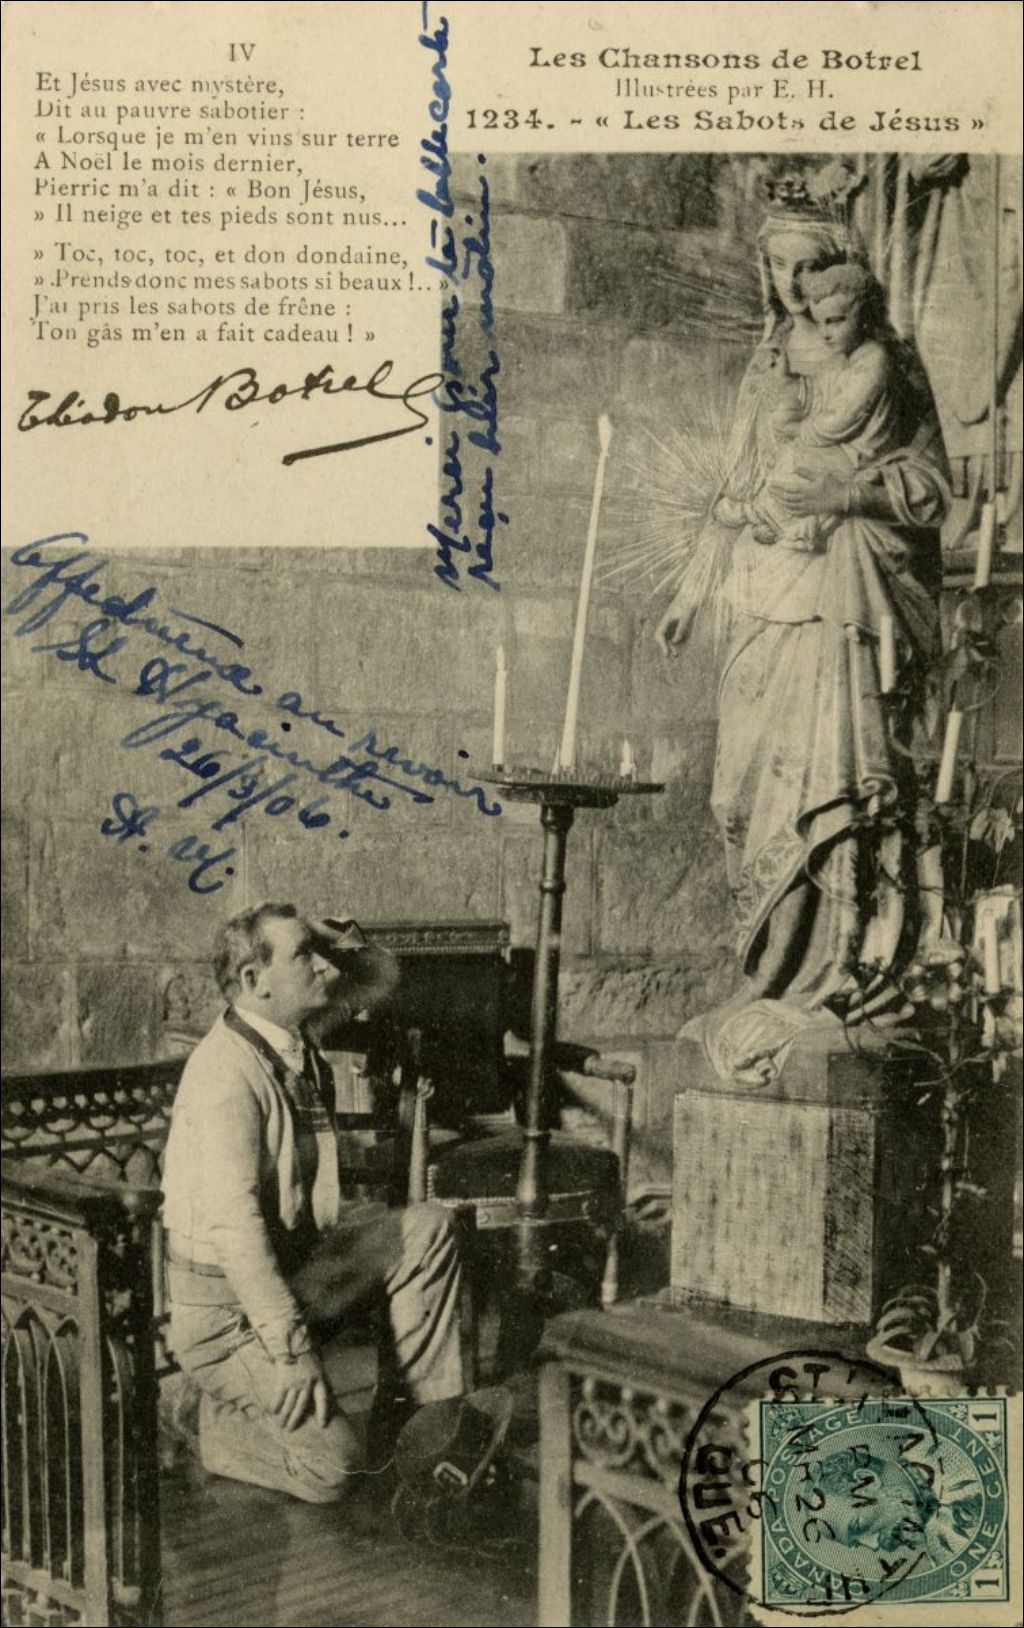 IV
Et Jésus avec mystère,
Dit au pauvre sabotier :
« Lorsque je m'en vins sur terre
A Noël le mois dernier,
Pierric m'a dit : « Bon Jésus,
» Il neige et tes pieds sont nus...
» Toc, toc, toc, et don dondaine,
» Prends donc mes sabots si beaux !.. »
J'ai pris les sabots de frêne :
Ton gâs m'en a fait cadeau ! »
Théodore Botrel
Les Chansons de Botrel
Illustrées par E. H.
1234. - « Les Sabots de Jésus »
Merci pour ta belle carte
reçu hier matin.
Affectueux au revoir
St Hyacinthe
26/3/06.
CANADA POSTAGE
ONE CENT
1
1
PM
MR 26
06
QUE.